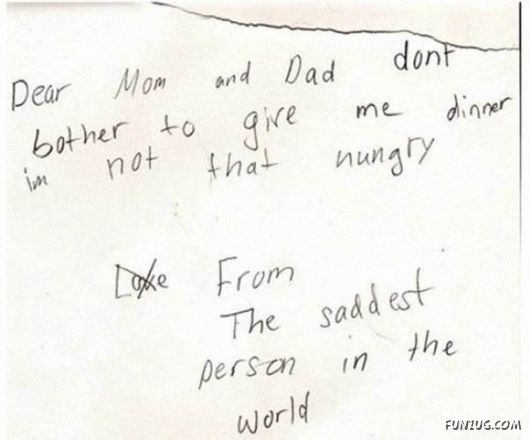 Dear Mom and Dad dont
bother to give me dinner
im not that nungry
Love From
The saddest
person in the
world
FUNZUG.COM